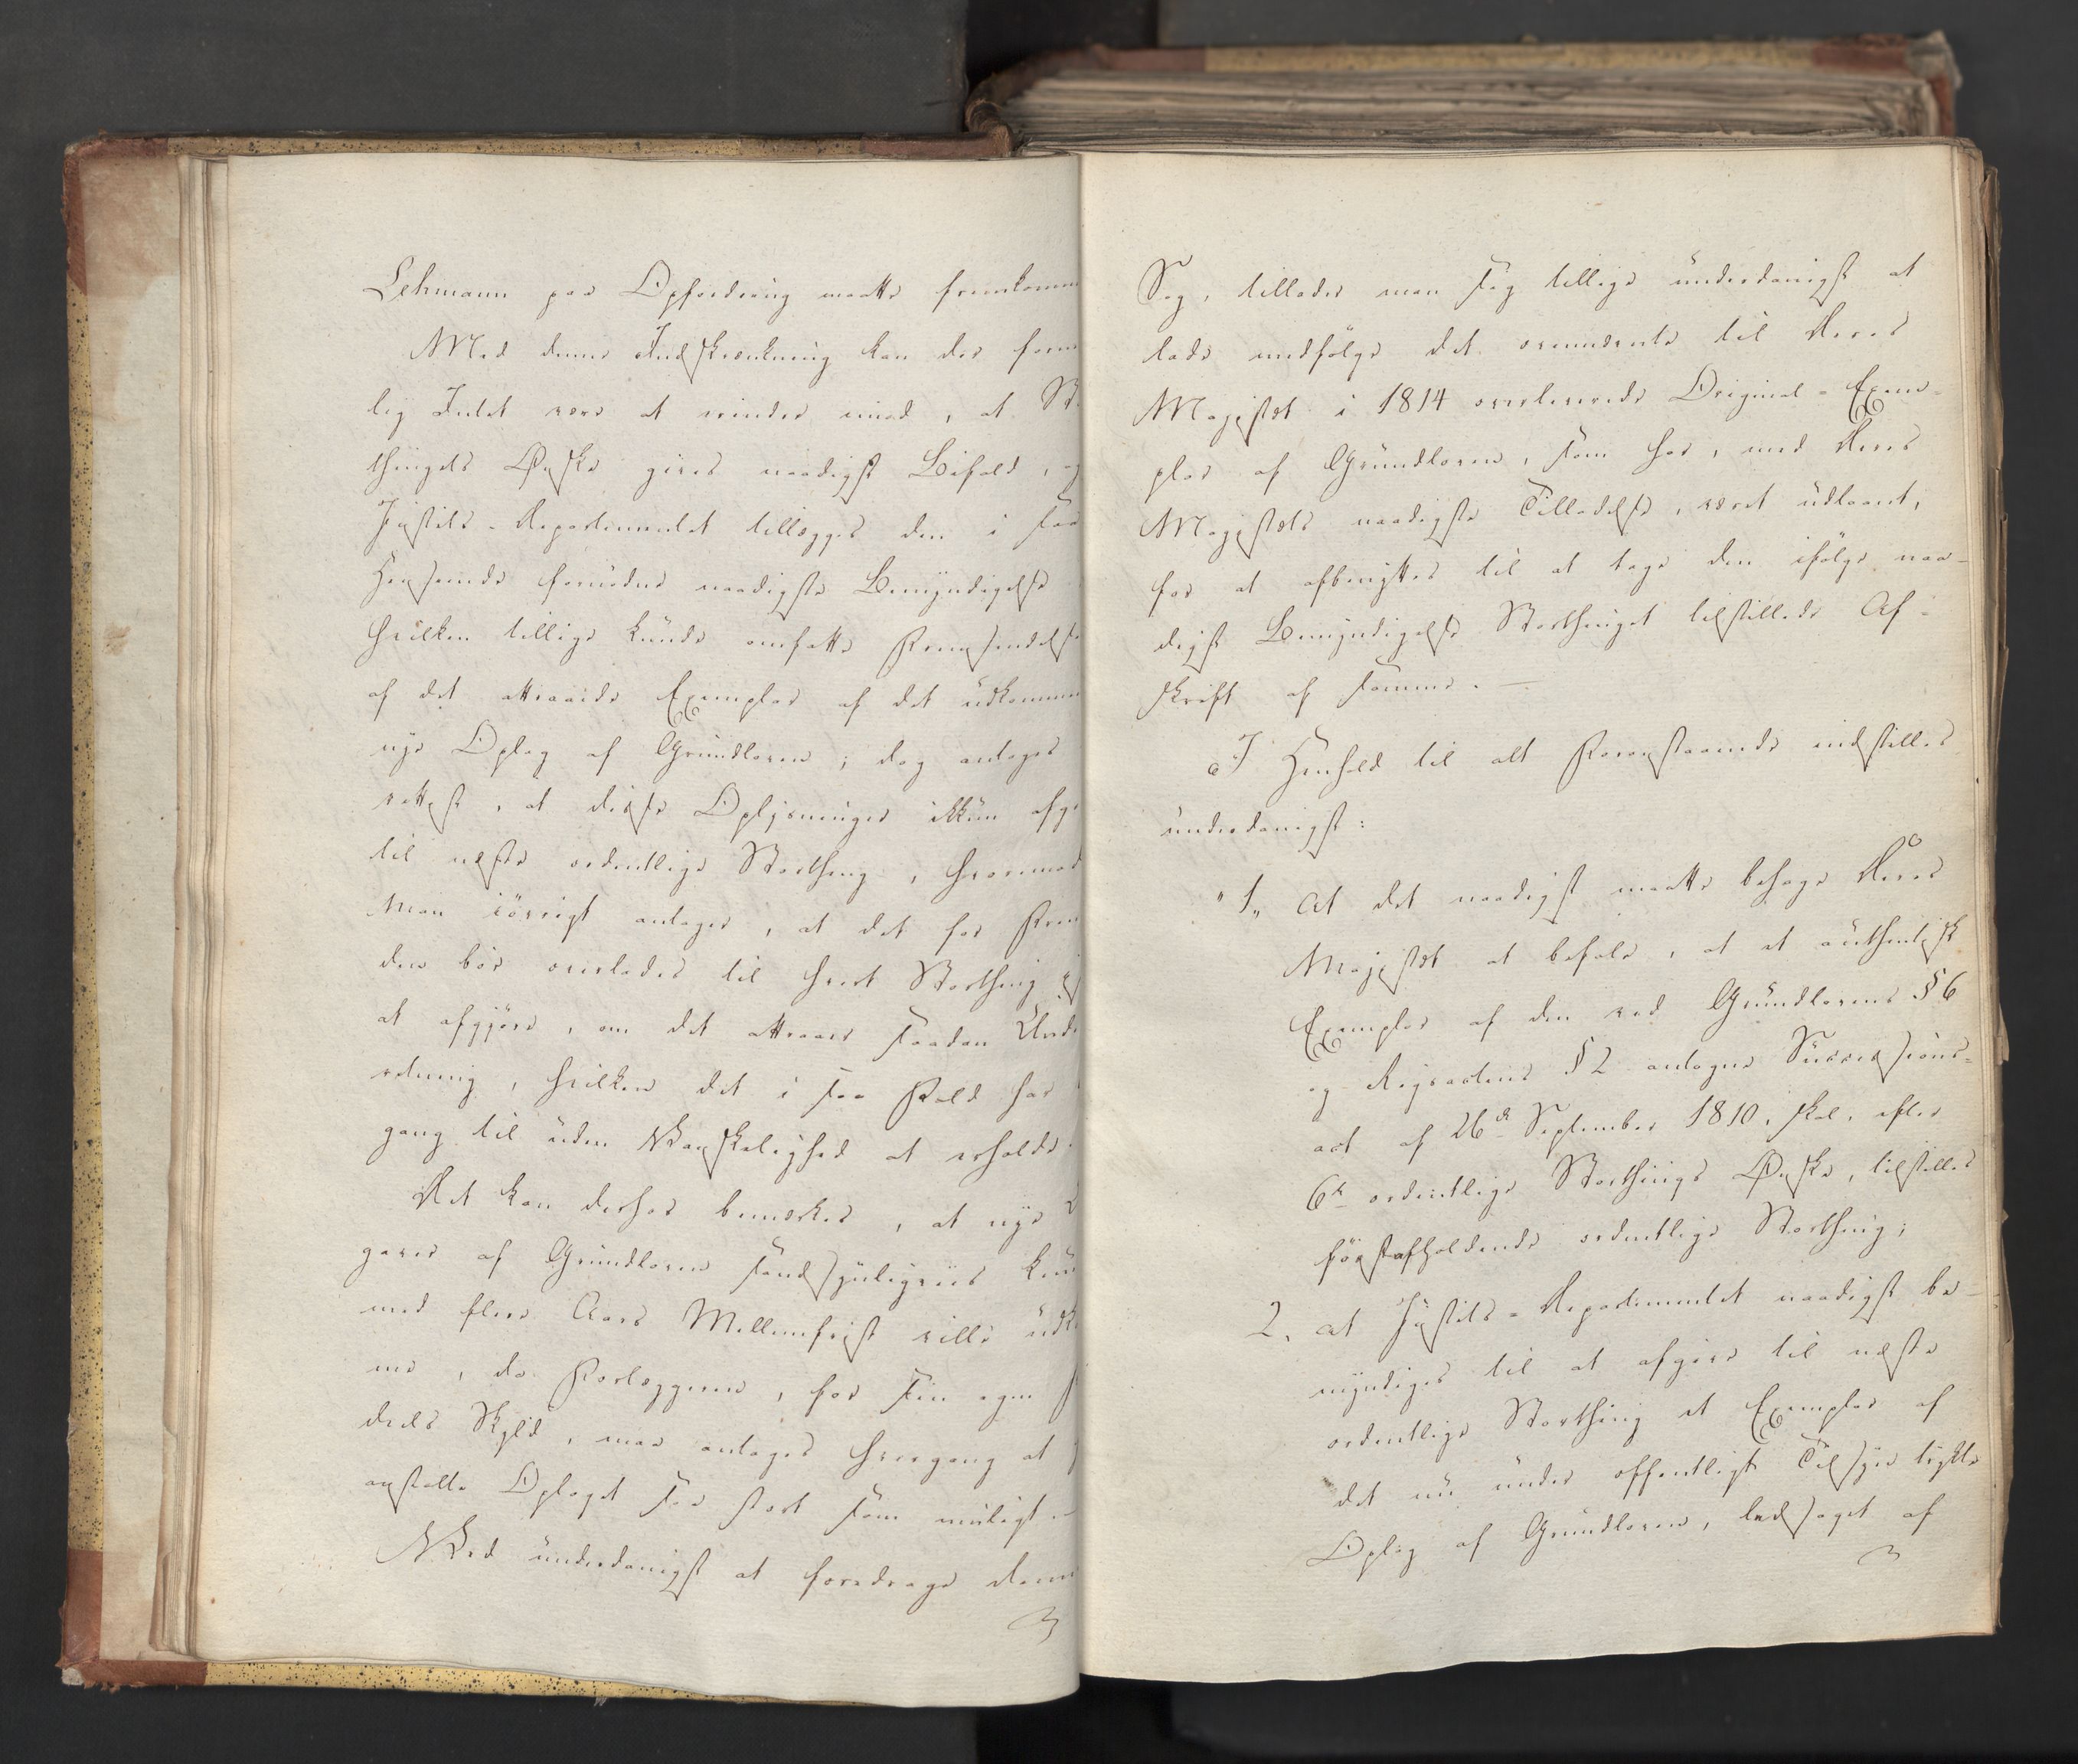 Lehmann paa Opfordring maatte fremkomm
Med denne Indskrænkning kan der form
lig Intet være at erindre imod, at St
thingets Ønske gives naadigst Bifald, og
Justits-Departementet tillægges den i saa
Henseende fornødne naadigste Bemyndigelse
hvilken tillige kunde omfatte Fremsendelse
af det attraaede Exemplar af det udkomme
nye Oplag af Grundloven; dog antages
rettest, at disse Oplysninger ikkun afg
til næste ordentlige Storthing, hvorimod
man iøvrigt antager, at det for Frem
den bør overlades til hvert Storthing
at afgjøre, om det attraaer saadan Und
retning, hvilken det i saa Fald har
gang til uden Vanskelighed at erholde.
Det kan derhos bemærkes, at nye
gaver af Grundloven sandsynligviis kun
med flere Aars Mellemfrist ville udk
me, da Forlæggeren, for sin egen
deels Skyld, maa antages hvergang at
anstalte Oplaget saa stort som muligt.
Ved underdanigst at foredrage denne
Sag, tillader man sig tillige underdanigst at
lade medfølge det ommeldte til Deres
Majestæt i 1814 overleverede Original-Exem-
plar af Grundloven, som har, med Deres
Majestæts naadigste Tilladelse, været udlaant,
for at afbenyttes til at tage den ifølge naa-
digst Bemyndigelse Storthinget tilstillede Af-
skrift af samme. —
I Henhold til alt Foranstaaende indstilles
underdanigst:
"1, At det naadigst maatte behage Deres
Majestæt at befale, at et authentisk
Exemplar af den ved Grundlovens § 6
og Rigsactens § 2 antagne Successions-
act af 26de September 1810, skal, efter
6te ordentlige Storthings Ønske, tilstilles
førstafholdende ordentlige Storthing;
2, at Justits-Departementet naadigst be-
myndiges til at afgive til næste
ordentlige Storthing et Exemplar af
det nu under offentligt Tilsyn trykte
Oplag af Grundloven, ledsaget af